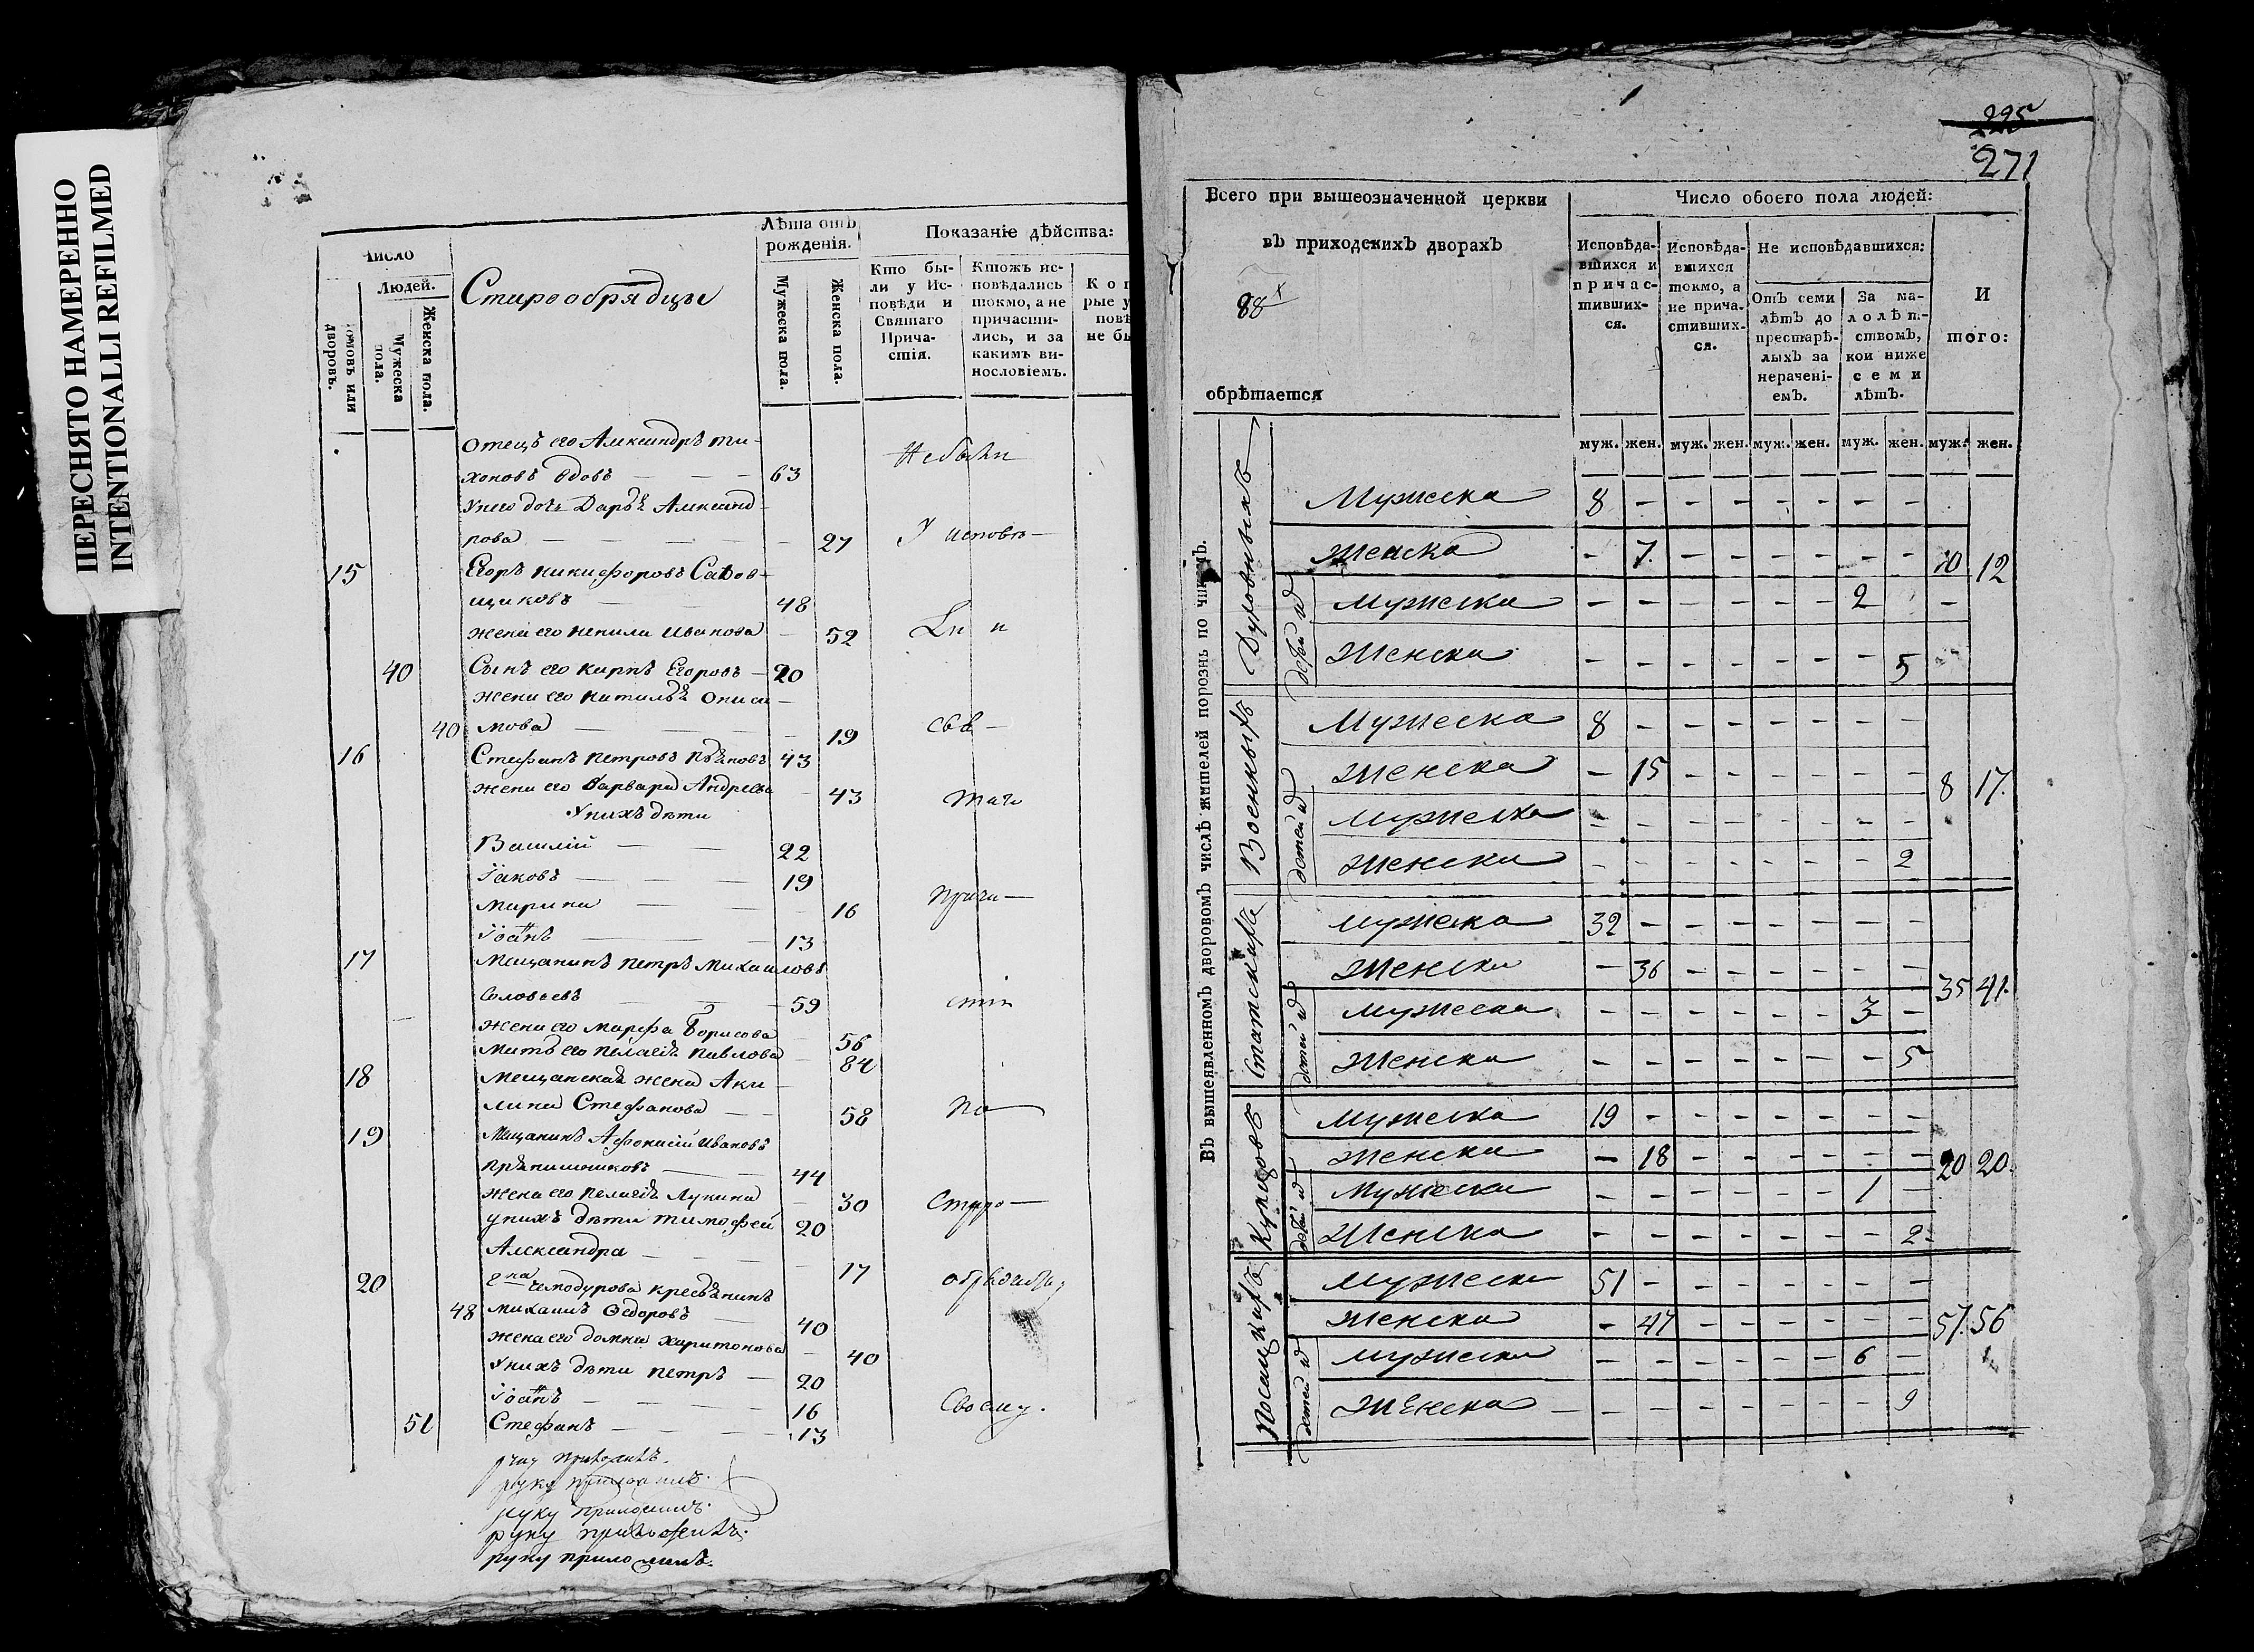 ПЕРЕСНЯТО НАМЕРЕННО
INTENTIONALLI REFILMED
Число
Людей.
домовъ или дворовъ.
Мужеска пола.
Женска пола.
Старообрядцы
Лѣта отъ рожденія.
Мужеска пола.
Женска пола.
Показаніе дѣйства:
Кто бы-
ли у Ис-
повѣди и
Святаго
Прича-
стія.
Ктожъ ис-
повѣдались
токмо, а не
причасти-
лись, и за
какимъ ви-
нословіемъ.
Кот
рые у
повѣ
не бы
Отецъ его Александръ Ти-
хоновъ вдовъ — — — 63 Небыли
У него дочь Дарья Александ-
рова — — — — 27 У исповѣ-
15 Егоръ Никифоровъ
щиковъ — — 48
жена его Ненила Иванова — 52
40 Сынъ его Карпъ Егоровъ — 20
жена его Наталья
40 мова — — — 19
16 Стефанъ Петровъ 43
жена его Варвара Андреева — 43
У нихъ дѣти
Василій — — 22
Іаковъ — — 19
Марина — — 16
Іоаннъ — — 13
17 Мещанинъ Петръ Михаиловъ
Соловьевъ — — 59
жена его Марфа Борисова 56
Мать его Пелагія Павлова — 84
18 Мещанская жена Аку-
лина Стефанова — — 58 по
19 Мещанинъ Афонасій Ивановъ
— — 44
жена его Пелагія Лукина — 30 Старо—
у нихъ дѣти Тимофей 20
Александра — — 17
20 крестьянинъ
48 Михаилъ Ѳедоровъ — 40
жена его Домна Харитонова — 40
У нихъ дѣти Петръ — 20
Іоаннъ — — — 16 Своему.
51 Стефанъ — — — 13
руку приложилъ.
руку приложилъ.
руку приложилъ.
руку приложилъ.
225
271
Всего при вышеозначенной церкви
въ приходскихъ дворахъ
88
обрѣтается
Число обоего пола людей:
Исповѣда-
вшихся и
причас-
тивших-
ся.
Исповѣда-
вшихся
токмо, а
не прича-
стивших-
ся.
Не исповѣдавшихся:
Отъ семи
лѣтъ до
престарѣ-
лыхъ за
нерачені-
емъ.
За ма-
лолѣт-
ствомъ,
кои ниже
семи
лѣтъ.
И
того:
муж. жен. муж. жен. муж. жен. муж. жен. муж. жен.
Въ вышеявленномъ дворовомъ числѣ жителей порознь по чинамъ.
Духовныхъ
Мужеска 8 - - - - - - -
Женска - 7. - - - - - - 10 12
детей ихъ
Мужеска - - - - - - 2 -
Женска - - - - - - - 5
Военныхъ
Мужеска 8 - - - - - - -
Женска - 15 - - - - - - 8 17.
детей ихъ
Мужеска - - - - - - - -
Женска - - - - - - - 2
Статскихъ
Мужеска 32 - - - - - - -
Женска - 36 - - - - - - 35 41.
детей ихъ
Мужеска - - - - - - 3 -
Женска - - - - - - - 5
Купцовъ
Мужеска 19 - - - - - - -
Женска - 18 - - - - - - 20 20.
детей ихъ
Мужеска - - - - - - 1 -
Женска - - - - - - - 2.
Посацкихъ
Мужеска 51 - - - - - - -
Женска - 47 - - - - - - 57. 56
детей ихъ
Мужеска - - - - - - 6 -
Женска - - - - - - - 9